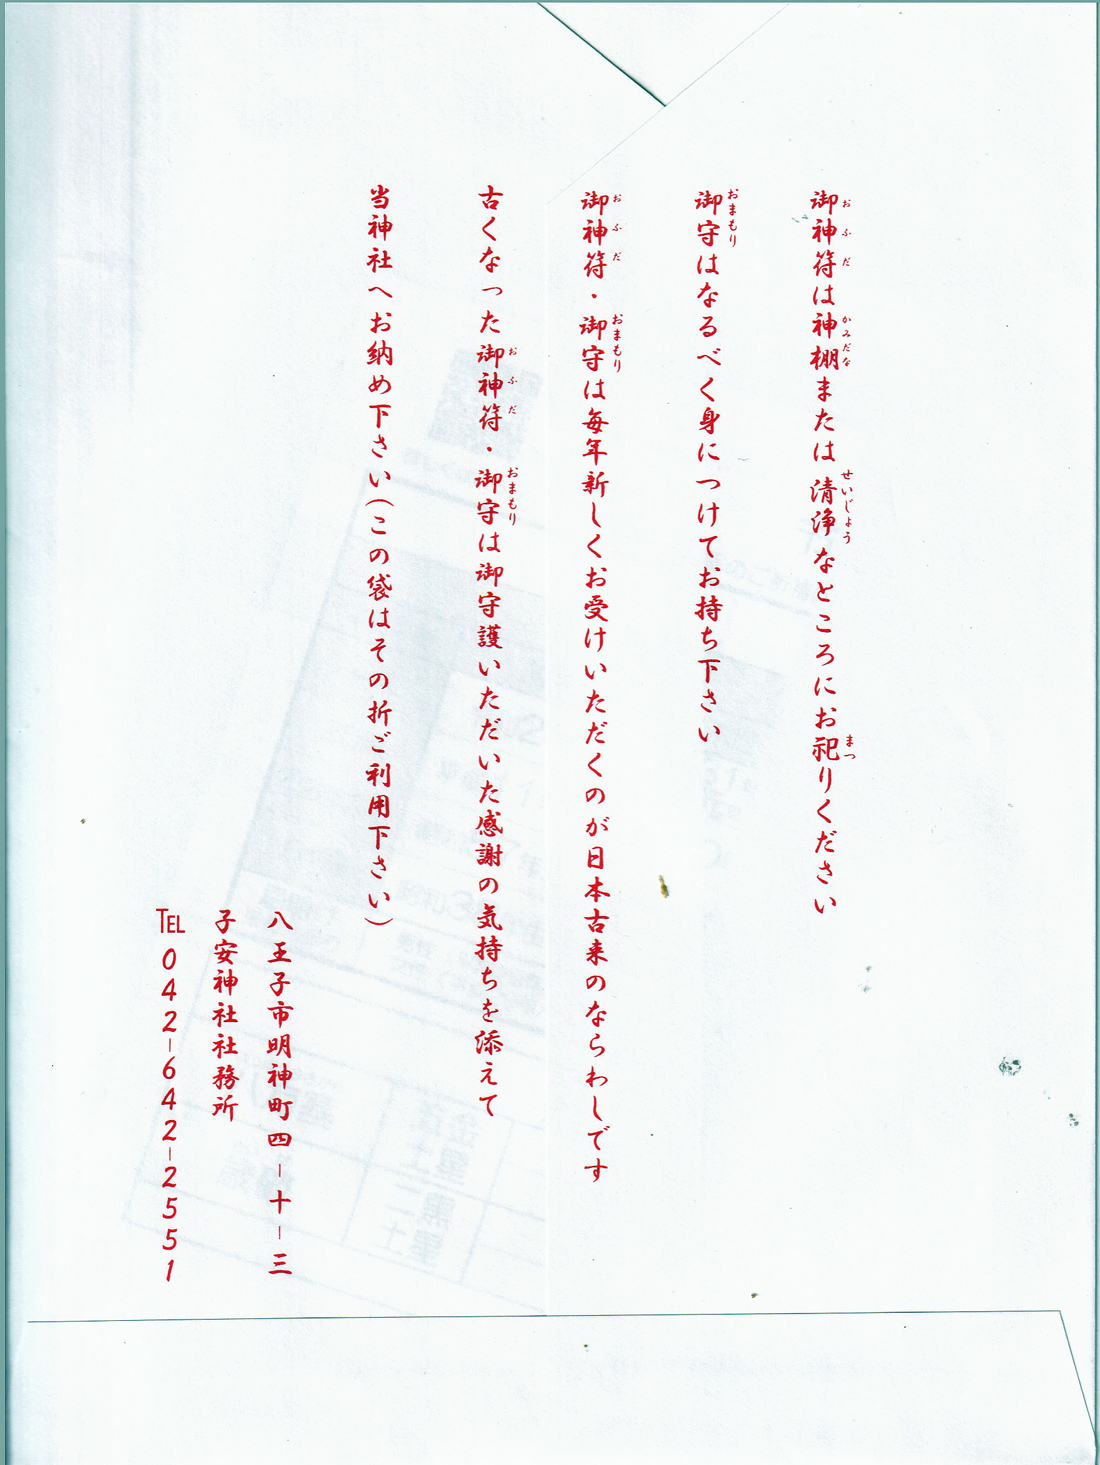 御神符は神棚または清浄なところにお祀りください
御守はなるべく身につけてお持ち下さい
御神符・御守は毎年新しくお受けいただくのが日本古来のならわしです
古くなった御神符・御守は御守護いただいた感謝の気持ちを添えて
当神社へお納め下さい(この袋はその折ご利用下さい)
八王子市明神町四-十-三
子安神社社務所
TEL 042-642-2551